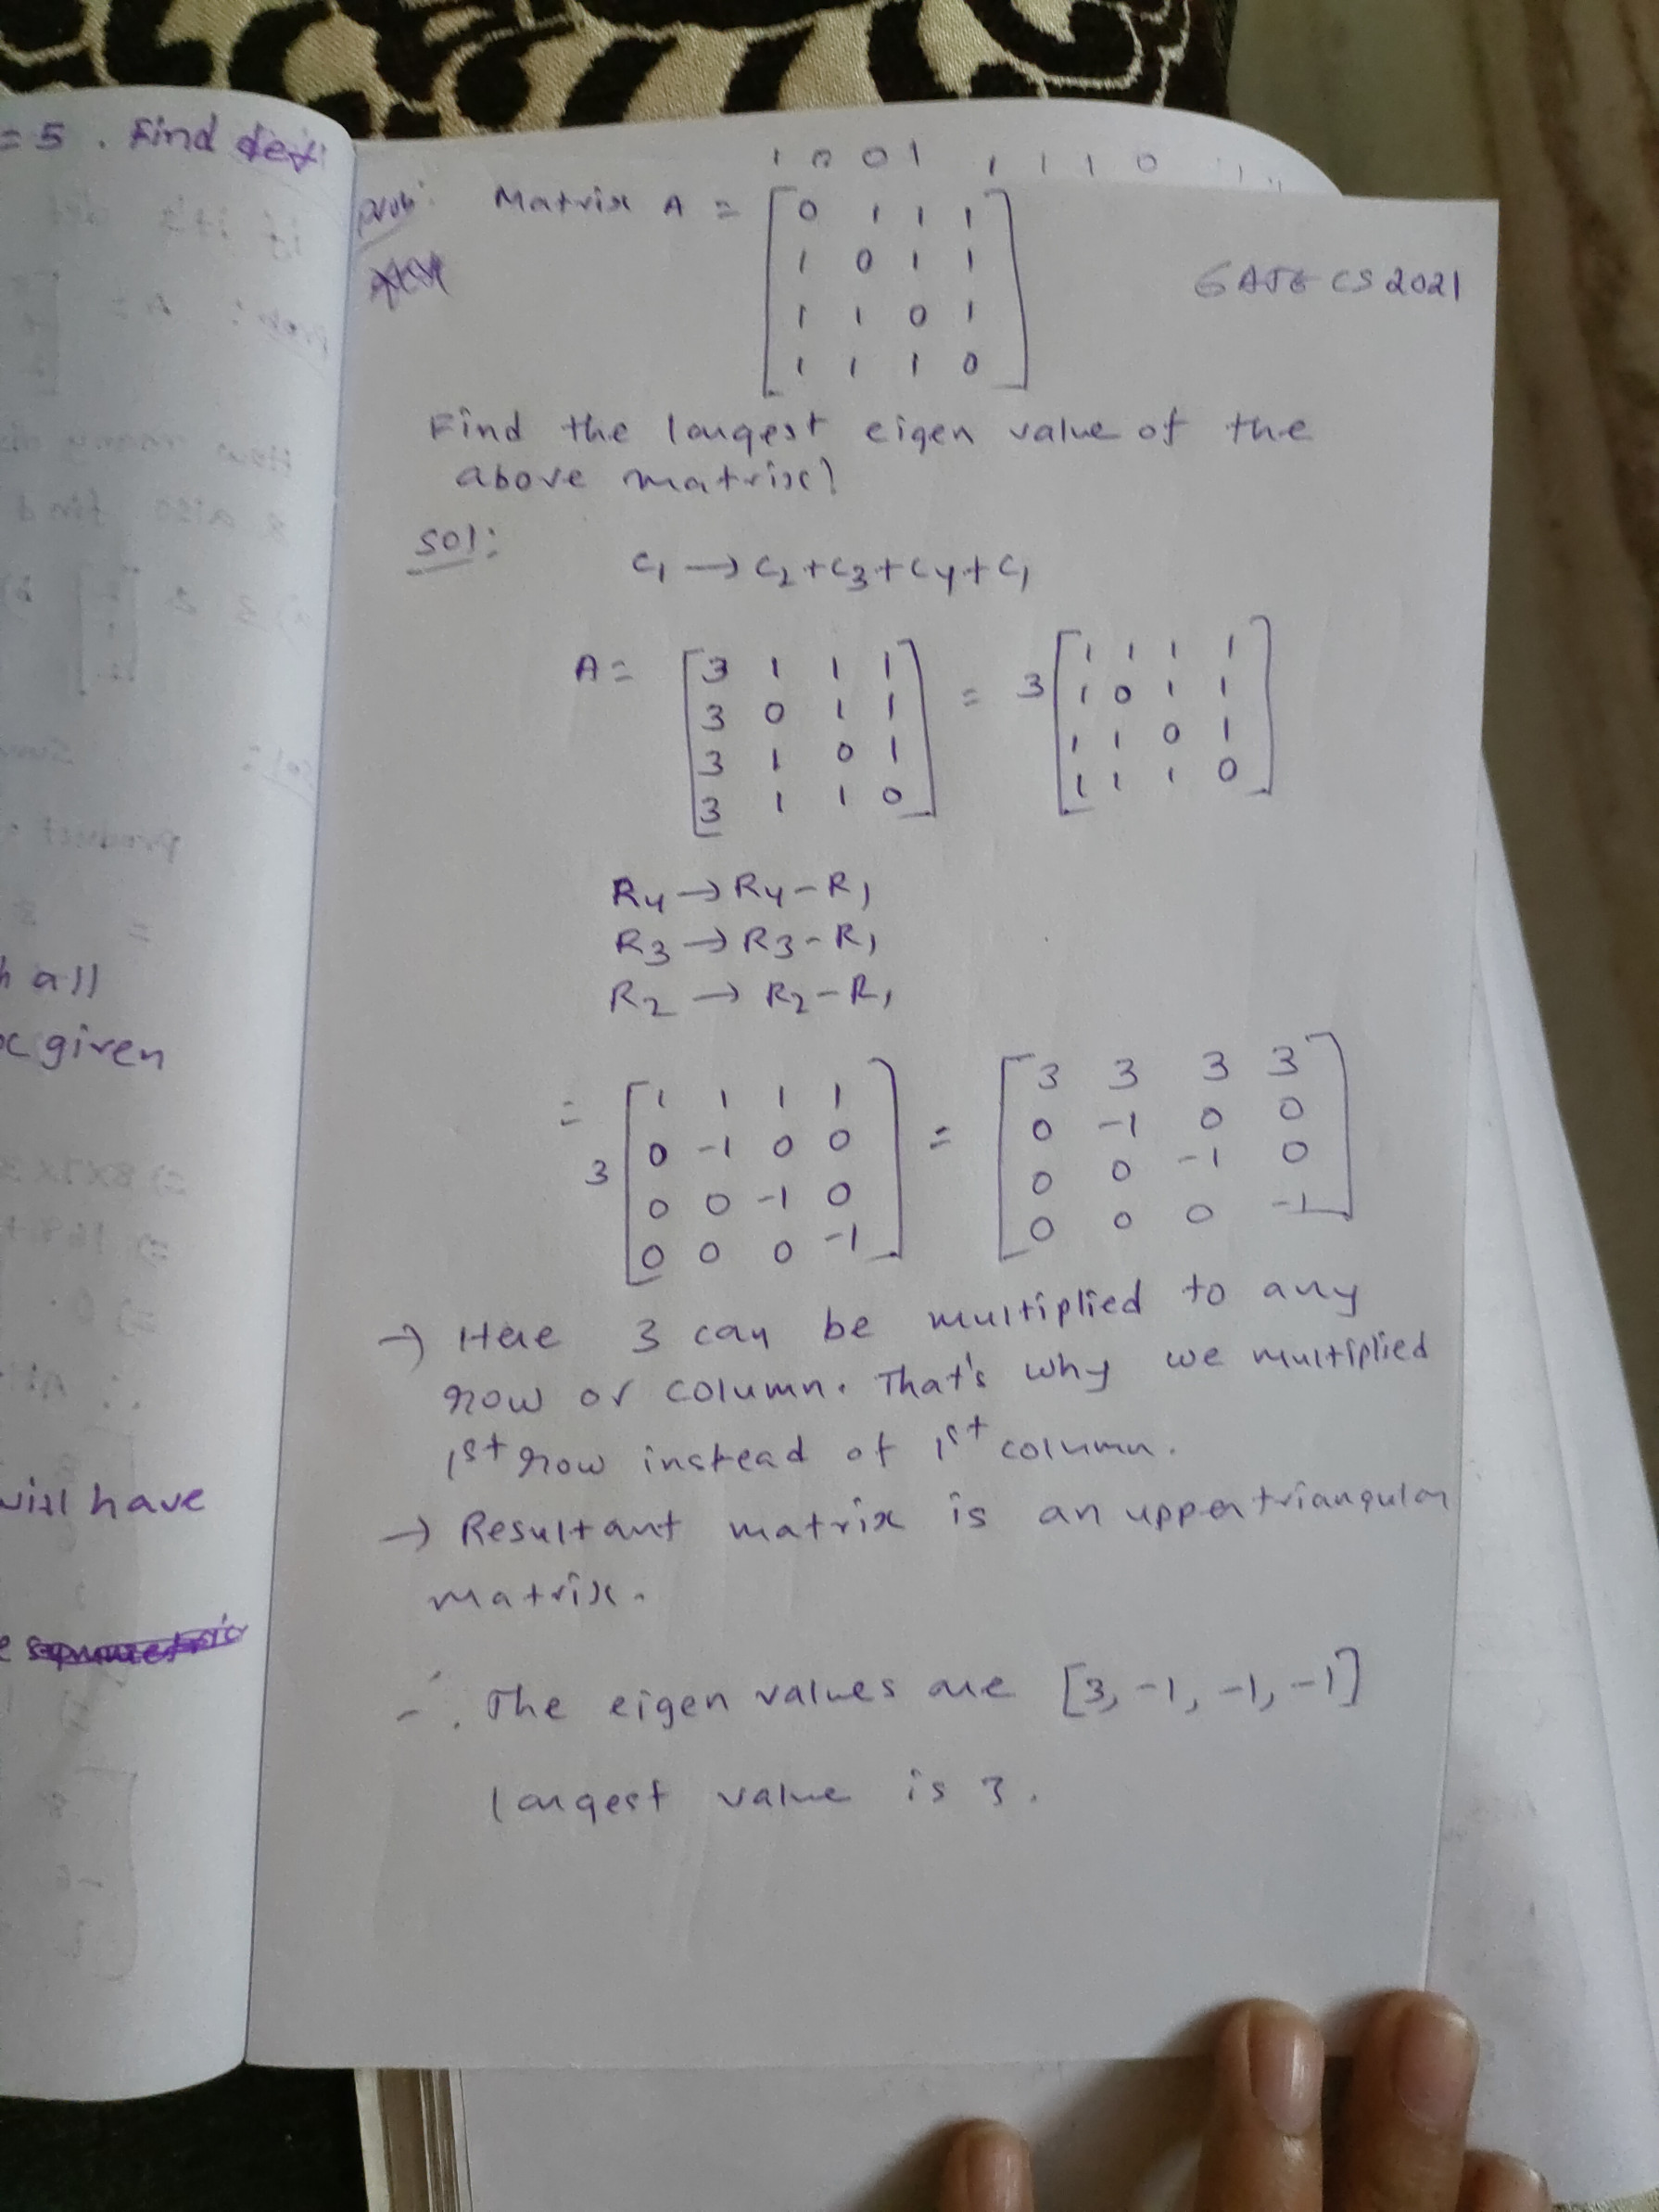 = 5 . Find
h all
x given
will have
e
1 0 0 1 1 1 1 0
prob: Matrix A = [0 1 1 1
1 0 1 1
1 1 0 1
1 1 1 0]
GATE CS 2021
Find the largest eigen value of the
above matrix?
Sol:
C1 → C2+C3+C4+C1
A = [3 1 1 1
3 0 1 1
3 1 0 1
3 1 1 0]
= 3 [1 1 1 1
1 0 1 1
1 1 0 1
1 1 1 0]
R4 → R4-R1
R3 → R3-R1
R2 → R2-R1
= 3 [1 1 1 1
0 -1 0 0
0 0 -1 0
0 0 0 -1]
= [3 3 3 3
0 -1 0 0
0 0 -1 0
0 0 0 -1]
→ Here 3 can be multiplied to any
row or column. That's why we multiplied
1st row instead of 1st column.
→ Resultant matrix is an upper triangular
matrix.
∴ The eigen values are [3, -1, -1, -1]
largest value is 3.